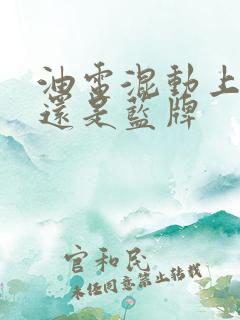 油電混動上
還是藍牌
官和民
未经同意禁止转载